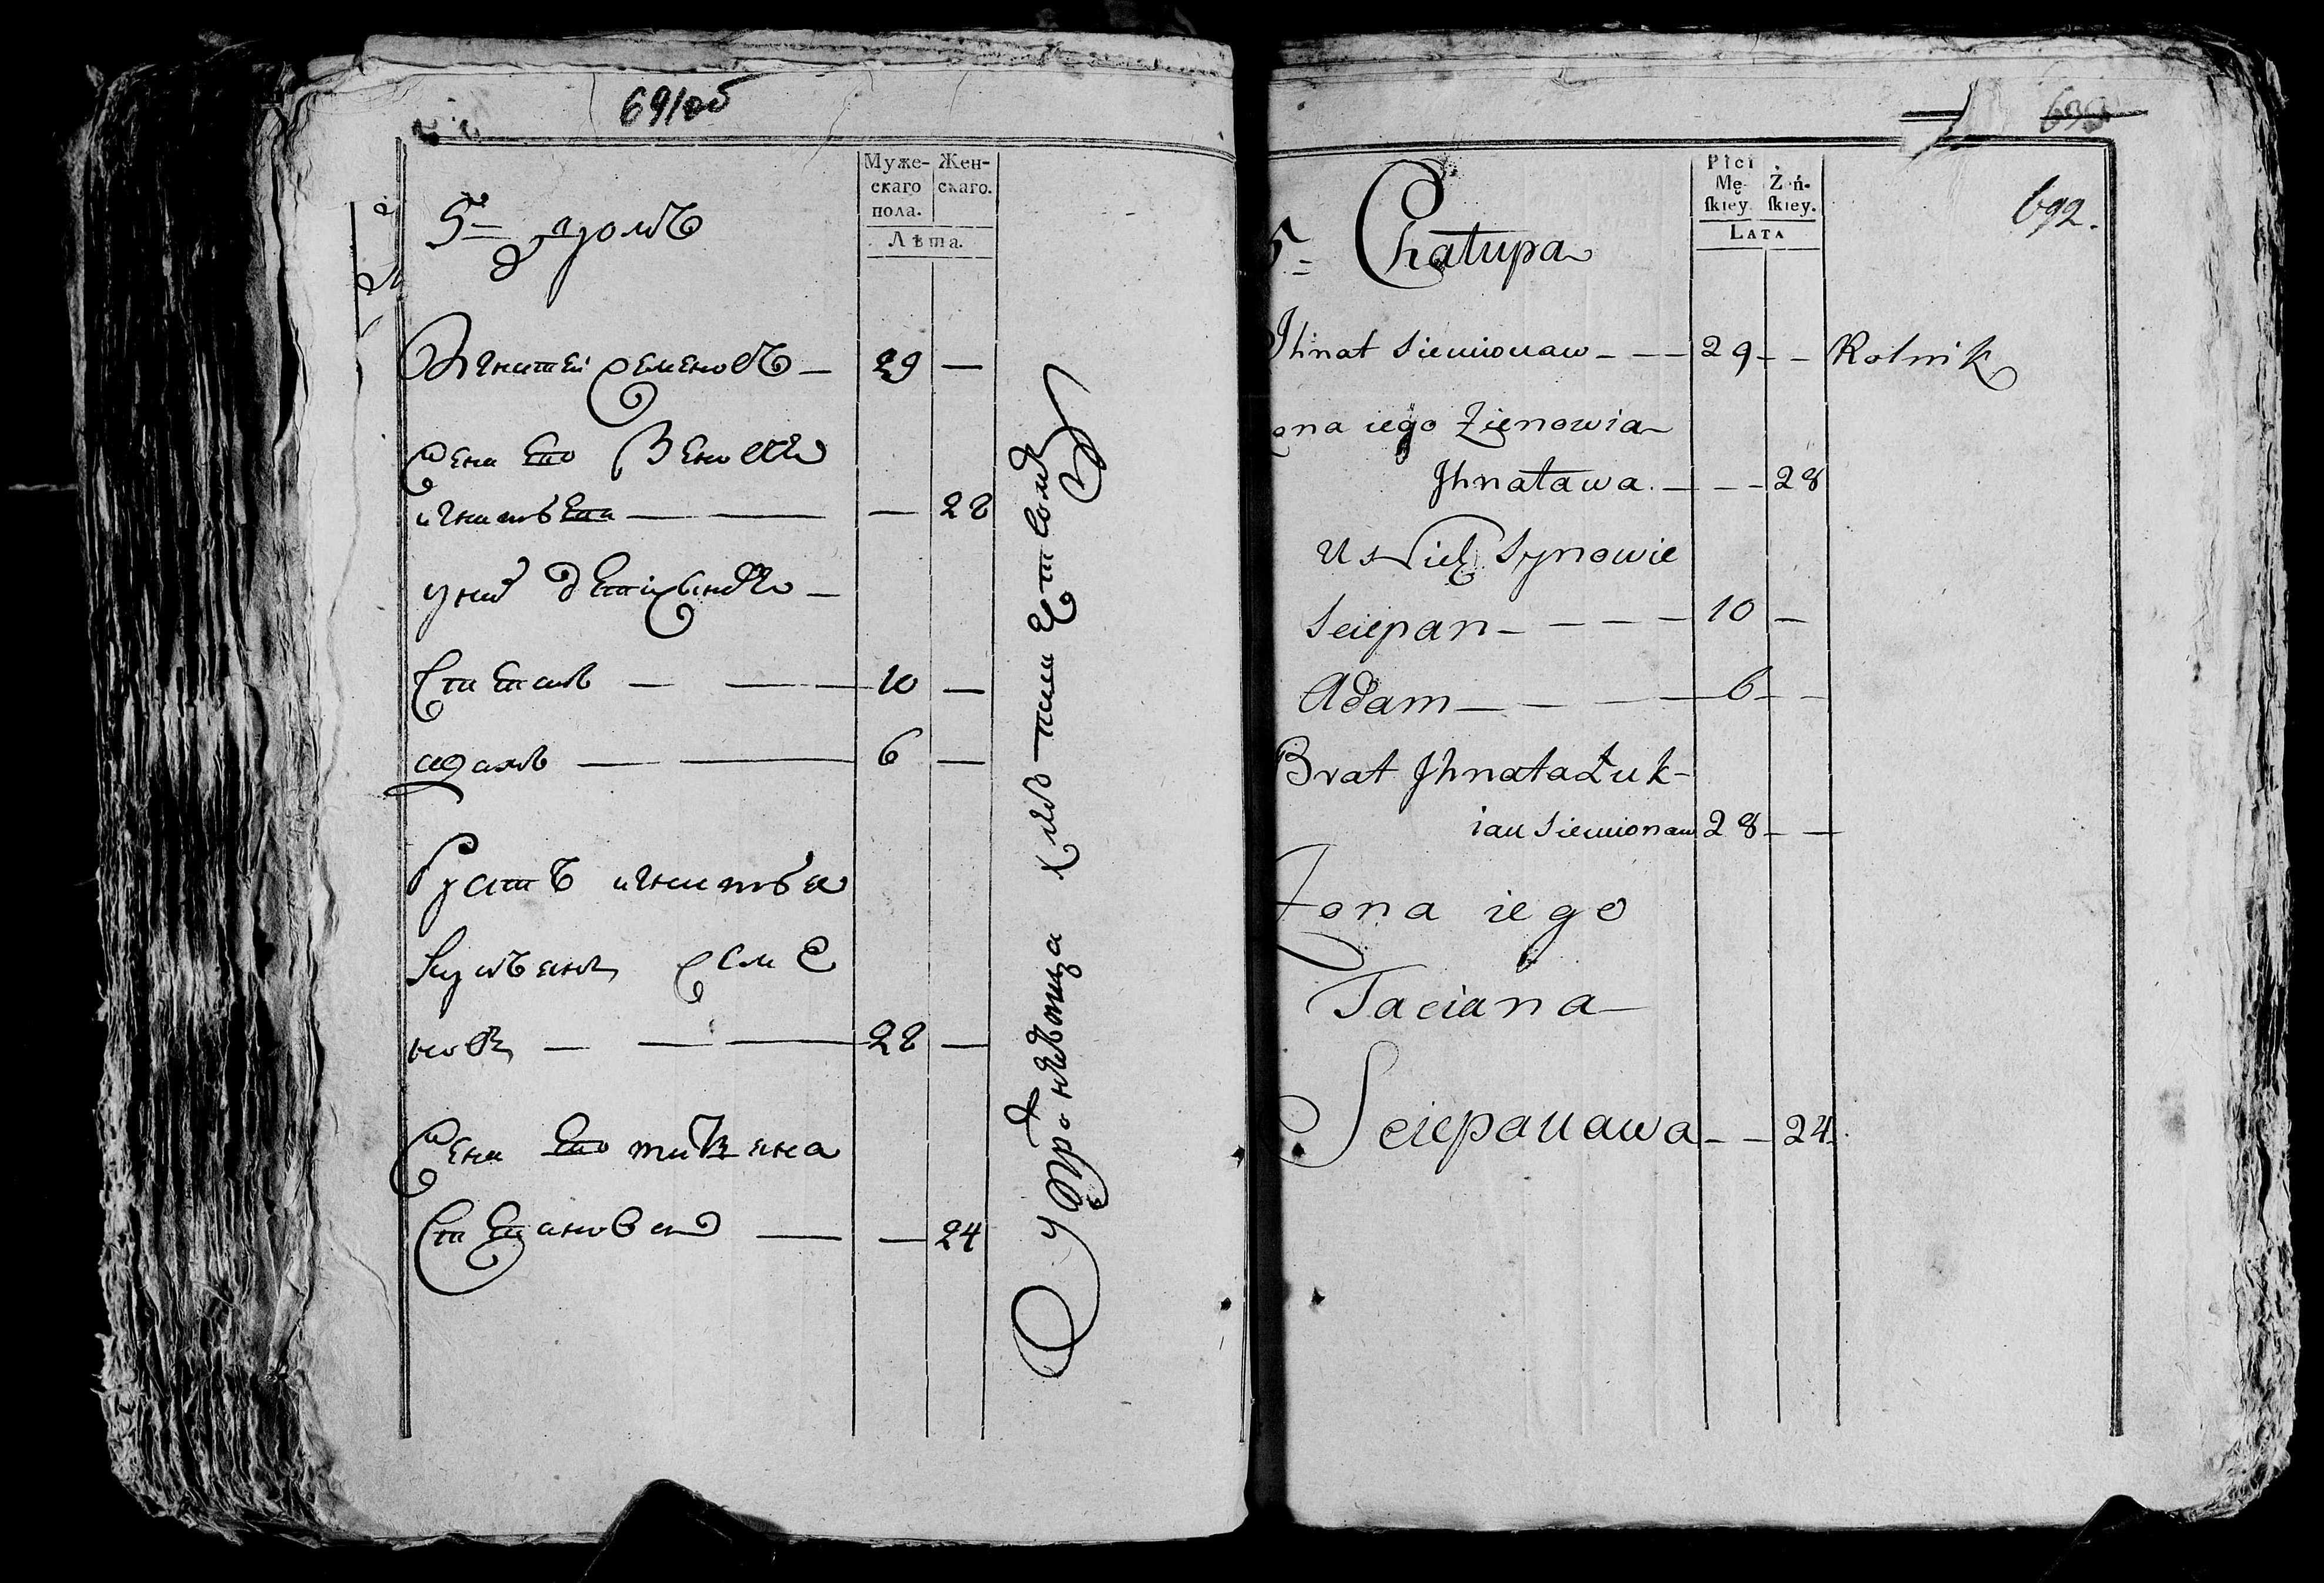 691об
Муже-
скаго
пола.
Жен-
скаго.
Лѣта.
5й домъ
Игнатей Семеновъ — 29 —
жена его Зеновия
игнатьева — — — 28
у них дети Сыновья —
Степанъ — — — 10 —
адамъ — — — 6 —
братъ игнатьея
лукьянъ Семе
новъ — — — 28 —
жена его татьяна
Степановна — — 24
Упражняетца хлебопашеством
692.
Płci
Mę-
skiey.
Żeń-
skiey.
LATA
5= Chałupa
Jhnat Siemionaw — — — 29 — — Rolnik
ona iego Zienowia
Jhnatawa. — — — 28
U Nich Synowie
Sciepan — — — — 10 —
Adam — — — — 6 — —
Brat Jhnata Łuk-
ian Siemionaw 28 — —
Zona iego
Taciana
Sciepanawa — — 24